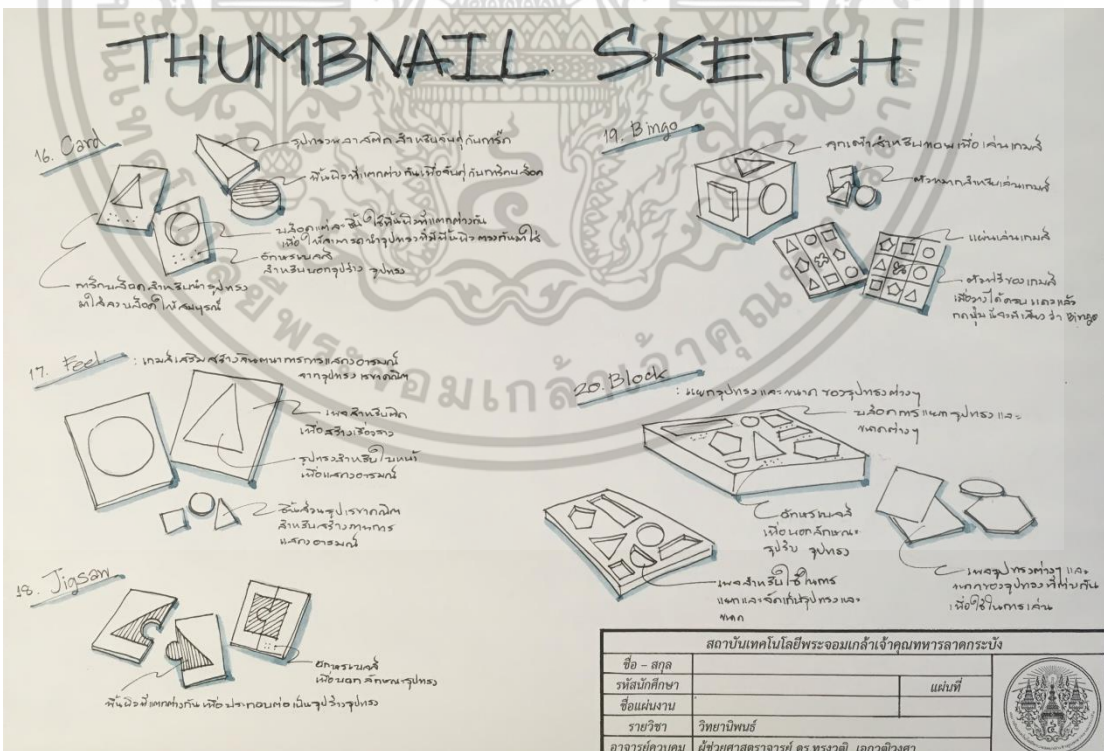 THUMBNAIL SKETCH
16. Card
รูปทรงพลาสติก สำหรับจับคู่กับการ์ด
พื้นผิวที่แตกต่างกันเพื่อจับคู่กับการ์ดบล็อค
บล็อคแต่ละชิ้นใช้พื้นผิวที่แตกต่างกัน
เพื่อให้สามารถนำรูปทรงที่มีพื้นผิวตรงกันมาใส่
อักษรเบลล์
สำหรับบอกรูปร่าง รูปทรง
การ์ดบล็อคสำหรับนำรูปทรง
มาใส่ลงบล็อคให้สมบูรณ์
17. Feel : เกมส์เสริมสร้างจินตนาการการแสดงอารมณ์
จากรูปทรง เรขาคณิต
เพื่อสร้างเรื่องราว
รูปทรงสำหรับใบหน้า
เพื่อแสดงอารมณ์
ชิ้นส่วนรูปเรขาคณิต
สำหรับสร้างภาพการ
แสดงอารมณ์
18. Jigsaw
อักษรเบลล์
เพื่อบอกลักษณะรูปทรง
พื้นผิวที่แตกต่างกัน เพื่อประกอบต่อเป็นรูปร่างรูปทรง
19. Bingo
ลูกเต๋าสำหรับทอยเพื่อเล่นเกมส์
ตัวหมากสำหรับเล่นเกมส์
แผ่นเล่นเกมส์
เมื่อวางได้ครบแถวแล้ว
กดปุ่มนี้จะมีเสียงว่า Bingo
20. Block : แยกรูปทรงและขนาดของรูปทรงต่างๆ
บล็อคการแยกรูปทรงและ
ขนาดต่างๆ
อักษรเบลล์
เพื่อบอกลักษณะ
รูปทรง
สำหรับใช้ในการ
แยกและจัดเก็บรูปทรงและ
ขนาด
รูปทรงต่างๆ และ
ขนาดของรูปทรงที่ต่างกัน
เพื่อใช้ในการเล่น
สถาบันเทคโนโลยีพระจอมเกล้าเจ้าคุณทหารลาดกระบัง
ชื่อ – สกุล
รหัสนักศึกษา
แผ่นที่
ชื่อแผ่นงาน
รายวิชา วิทยานิพนธ์
อาจารย์ควบคุม ผู้ช่วยศาสตราจารย์ ดร.ทรงวุฒิ เอกวุฒิวงศา